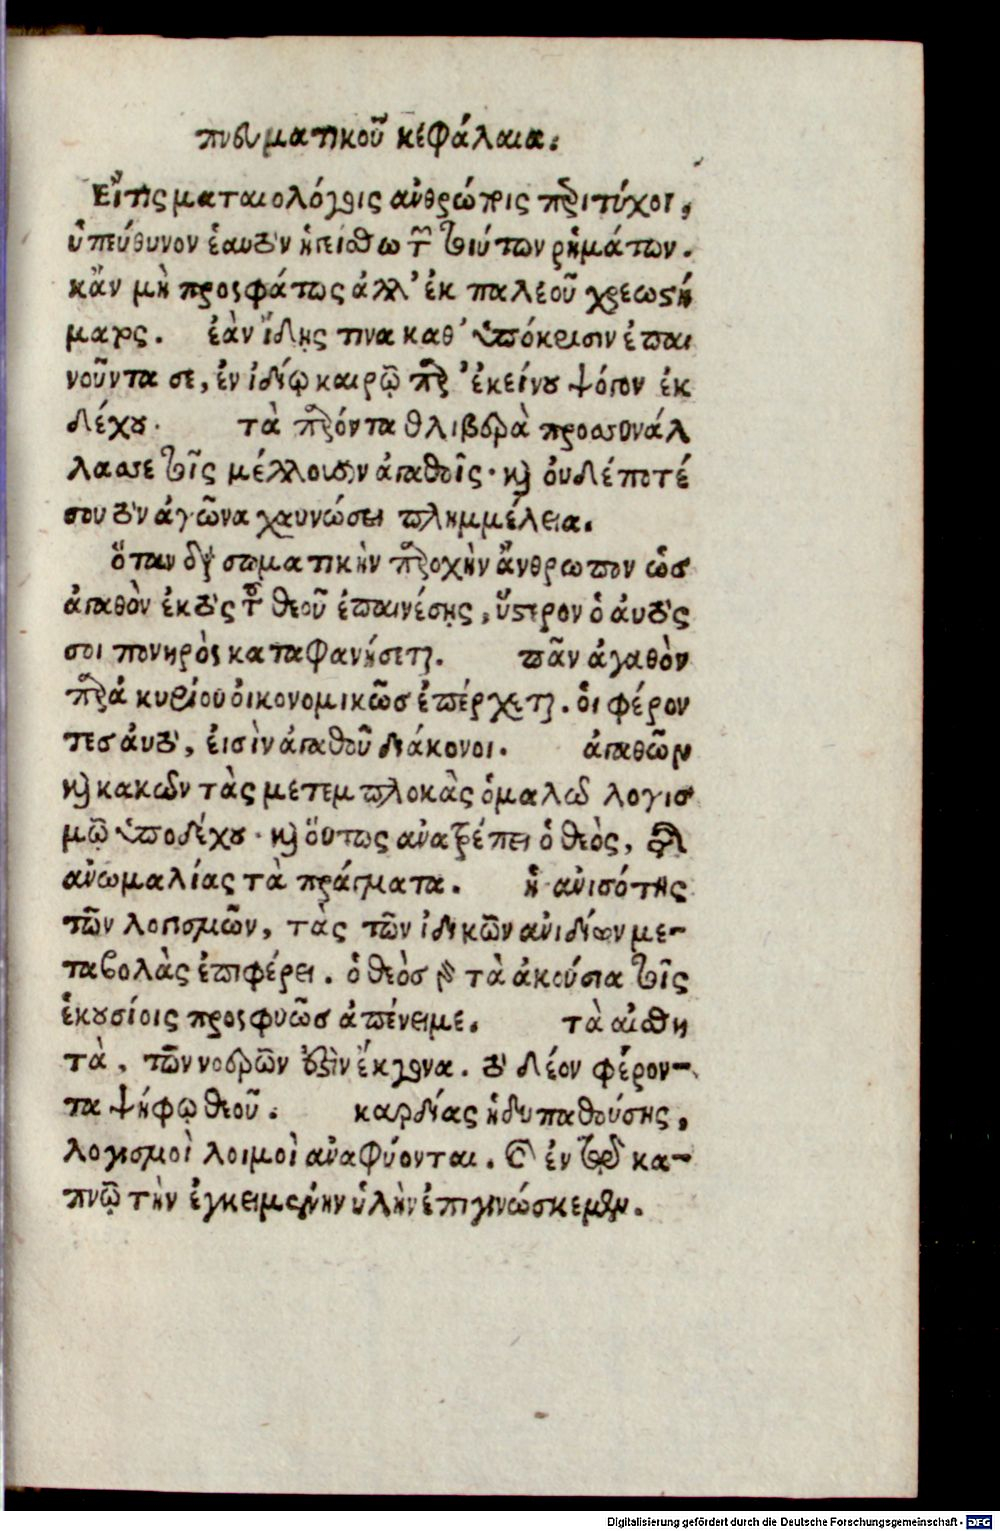 πνευματικοῦ κεφάλαια.
Εἴ τις ματαιολόγοις ἀνθρώποις περιτύχοι,
ὑπεύθυνον ἑαυτὸν ἡγείσθω τῶν τοιούτων ῥημάτων.
κἂν μὴ προσφάτως ἀλλ' ἐκ παλαιοῦ χρεωστή
ματος. ἐὰν ἴδῃς τινα καθ' ὑπόκρισιν ἐπαι
νοῦντα σε, ἐν ἰδίῳ καιρῷ παρ' ἐκείνου ψόγον ἐκ
δέχου. τὰ παρόντα θλιβερὰ προσυνάλ
λασσε τοῖς μέλλουσιν ἀγαθοῖς· καὶ οὐδέποτέ
σου τὸν ἀγῶνα χαυνώσει πλημμέλεια.
ὅταν διὰ σωματικὴν παροχὴν ἄνθρωπον ὡς
ἀγαθὸν ἐκτὸς τοῦ θεοῦ ἐπαινέσῃς, ὕστερον ὁ αὐτὸς
σοι πονηρὸς καταφανήσεται. πᾶν ἀγαθὸν
παρὰ κυρίου οἰκονομικῶς ἐπέρχεται. οἱ φέρον
τες αὐτὸ, εἰσὶν ἀγαθοῦ διάκονοι. ἀγαθῶν
καὶ κακῶν τὰς μετεμπλοκὰς ὁμαλῷ λογισ
μῷ ὑποδέχου· καὶ οὕτως ἀνατρέπει ὁ θεὸς, τὰς
ἀνωμαλίας τὰ πράγματα. ἡ ἀνισότης
τῶν λογισμῶν, τὰς τῶν ἰδικῶν ἀνιδίων με-
ταβολὰς ἐπιφέρει. ὁ θεὸς γὰρ τὰ ἀκούσια τοῖς
ἑκουσίοις προσφυῶς ἀπένειμε. τὰ αἰσθη
τὰ, τῶν νοερῶν εἰσὶν ἔκγονα. τὸ δέον φέρον-
τα ψήφῳ θεοῦ. καρδίας ἡδυπαθούσης,
λογισμοὶ λοιμοὶ ἀναφύονται. καὶ ἐν τῷ κα-
πνῷ τὴν ἐγκειμένην ὕλην ἐπιγινώσκομεν.
Digitalisierung gefördert durch die Deutsche Forschungsgemeinschaft - DFG